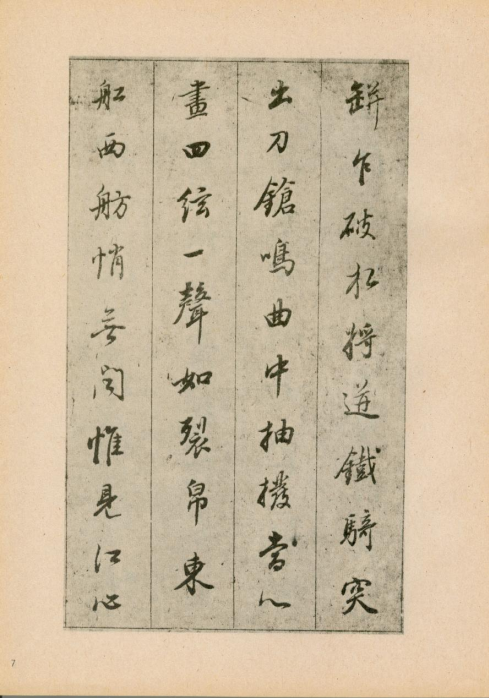 缾乍破水將迸鐵騎突
出刀鎗鳴曲中抽撥當心
畫四絃一聲如裂帛東
船西舫悄無聞惟見江心
7